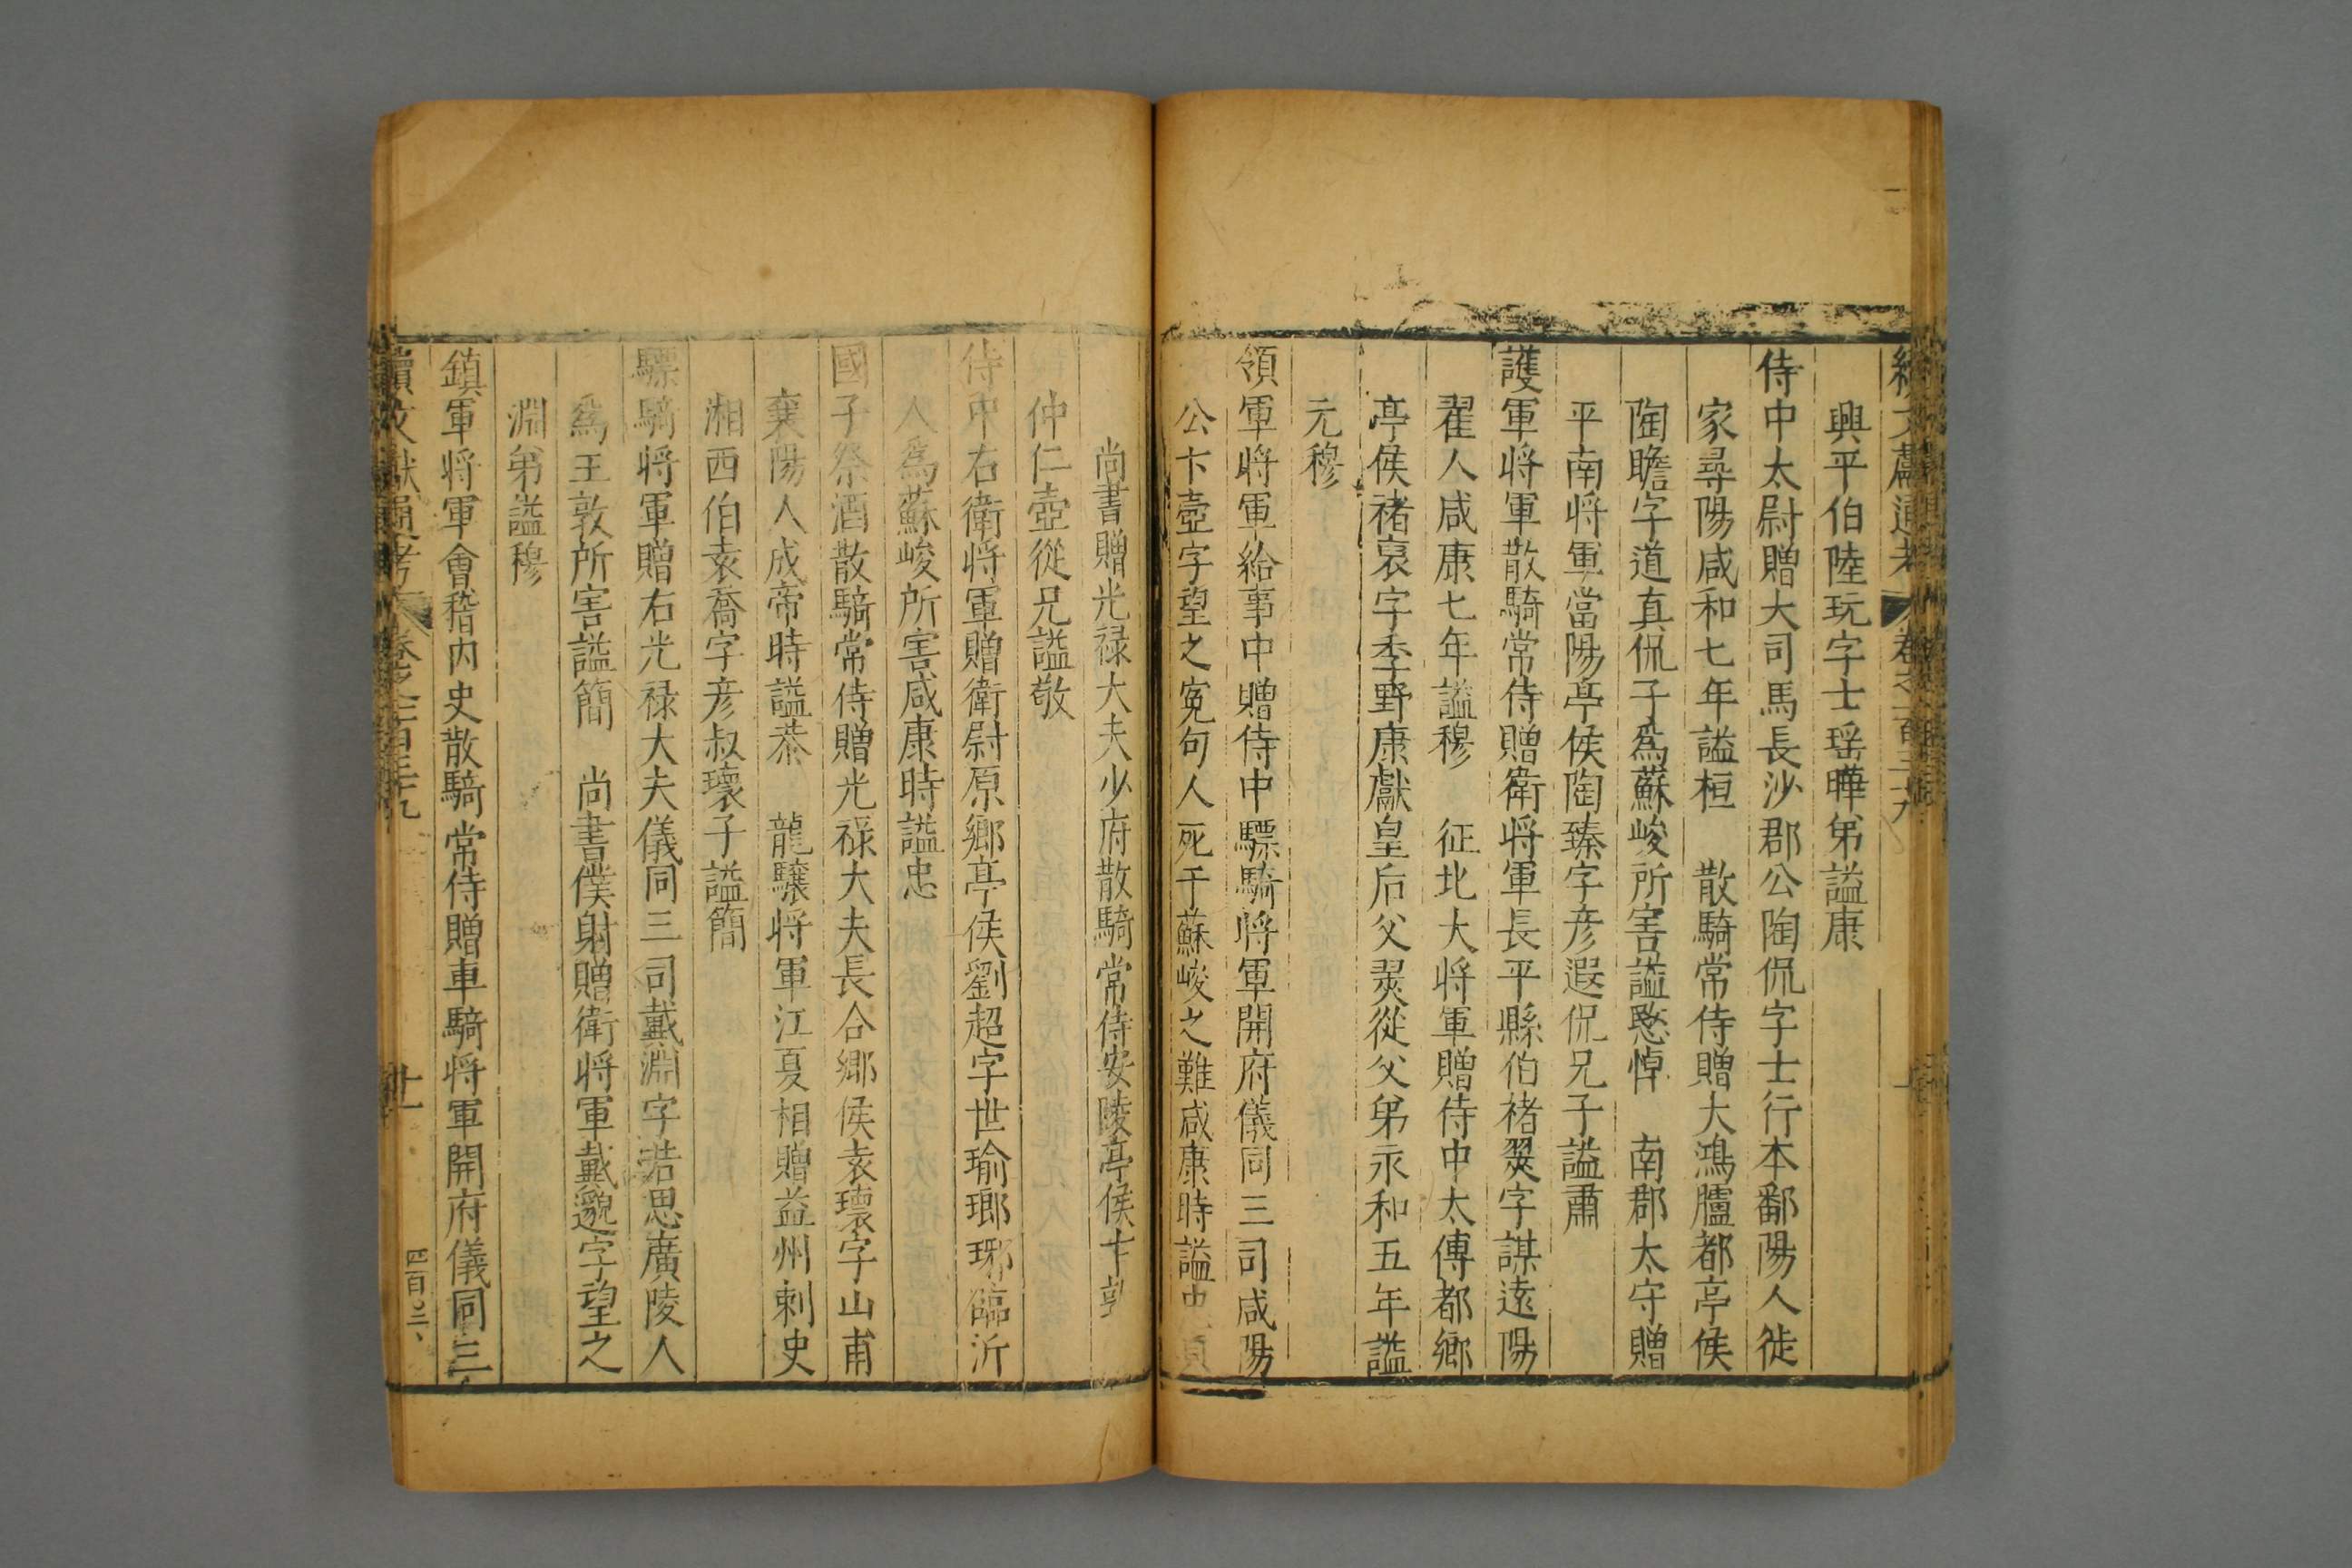 續文獻通考 卷之一百三十九
興平伯陸玩字士瑶曄弟謚康
侍中太尉贈大司馬長沙郡公陶侃字士行本鄱陽人徙
家尋陽咸和七年謚桓 散騎常侍贈大鴻臚都亭侯
陶瞻字道真侃子爲蘇峻所害謚愍悼 南郡太守贈
平南将軍當陽亭侯陶臻字彦遐侃兄子謚肅
護軍将軍散騎常侍贈衛将軍長平縣伯褚翜字謀遠陽
翟人咸康七年謚穆 征北大将軍贈侍中太傅都鄉
亭侯褚裒字季野康獻皇后父翜從父弟永和五年謚
元穆
領軍将軍給事中贈侍中驃騎将軍開府儀同三司咸陽
公卞壼字望之寃句人死于蘇峻之難咸康時謚忠貞
尚書贈光禄大夫少府散騎常侍安陵亭侯卞敦
仲仁壼從兄謚敬
侍中右衛将軍贈衛尉原鄉亭侯劉超字世瑜瑯琊臨沂
人爲蘇峻所害咸康時謚忠
國子祭酒散騎常侍贈光禄大夫長合鄉侯袁瓌字山甫
襄陽人成帝時謚恭 龍驤将軍江夏相贈益州刺史
湘西伯袁喬字彦叔瓌子謚簡
驃騎将軍贈右光禄大夫儀同三司戴淵字若思廣陵人
爲王敦所害謚簡 尚書僕射贈衛将軍戴邈字望之
淵弟謚穆
鎮軍将軍會稽内史散騎常侍贈車騎将軍開府儀同三
續文獻通考 卷之一百三十九 廿一